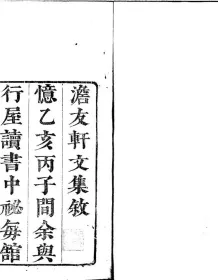 澹友軒文集敘
憶乙亥丙子間余與
行屋讀書中祕每館